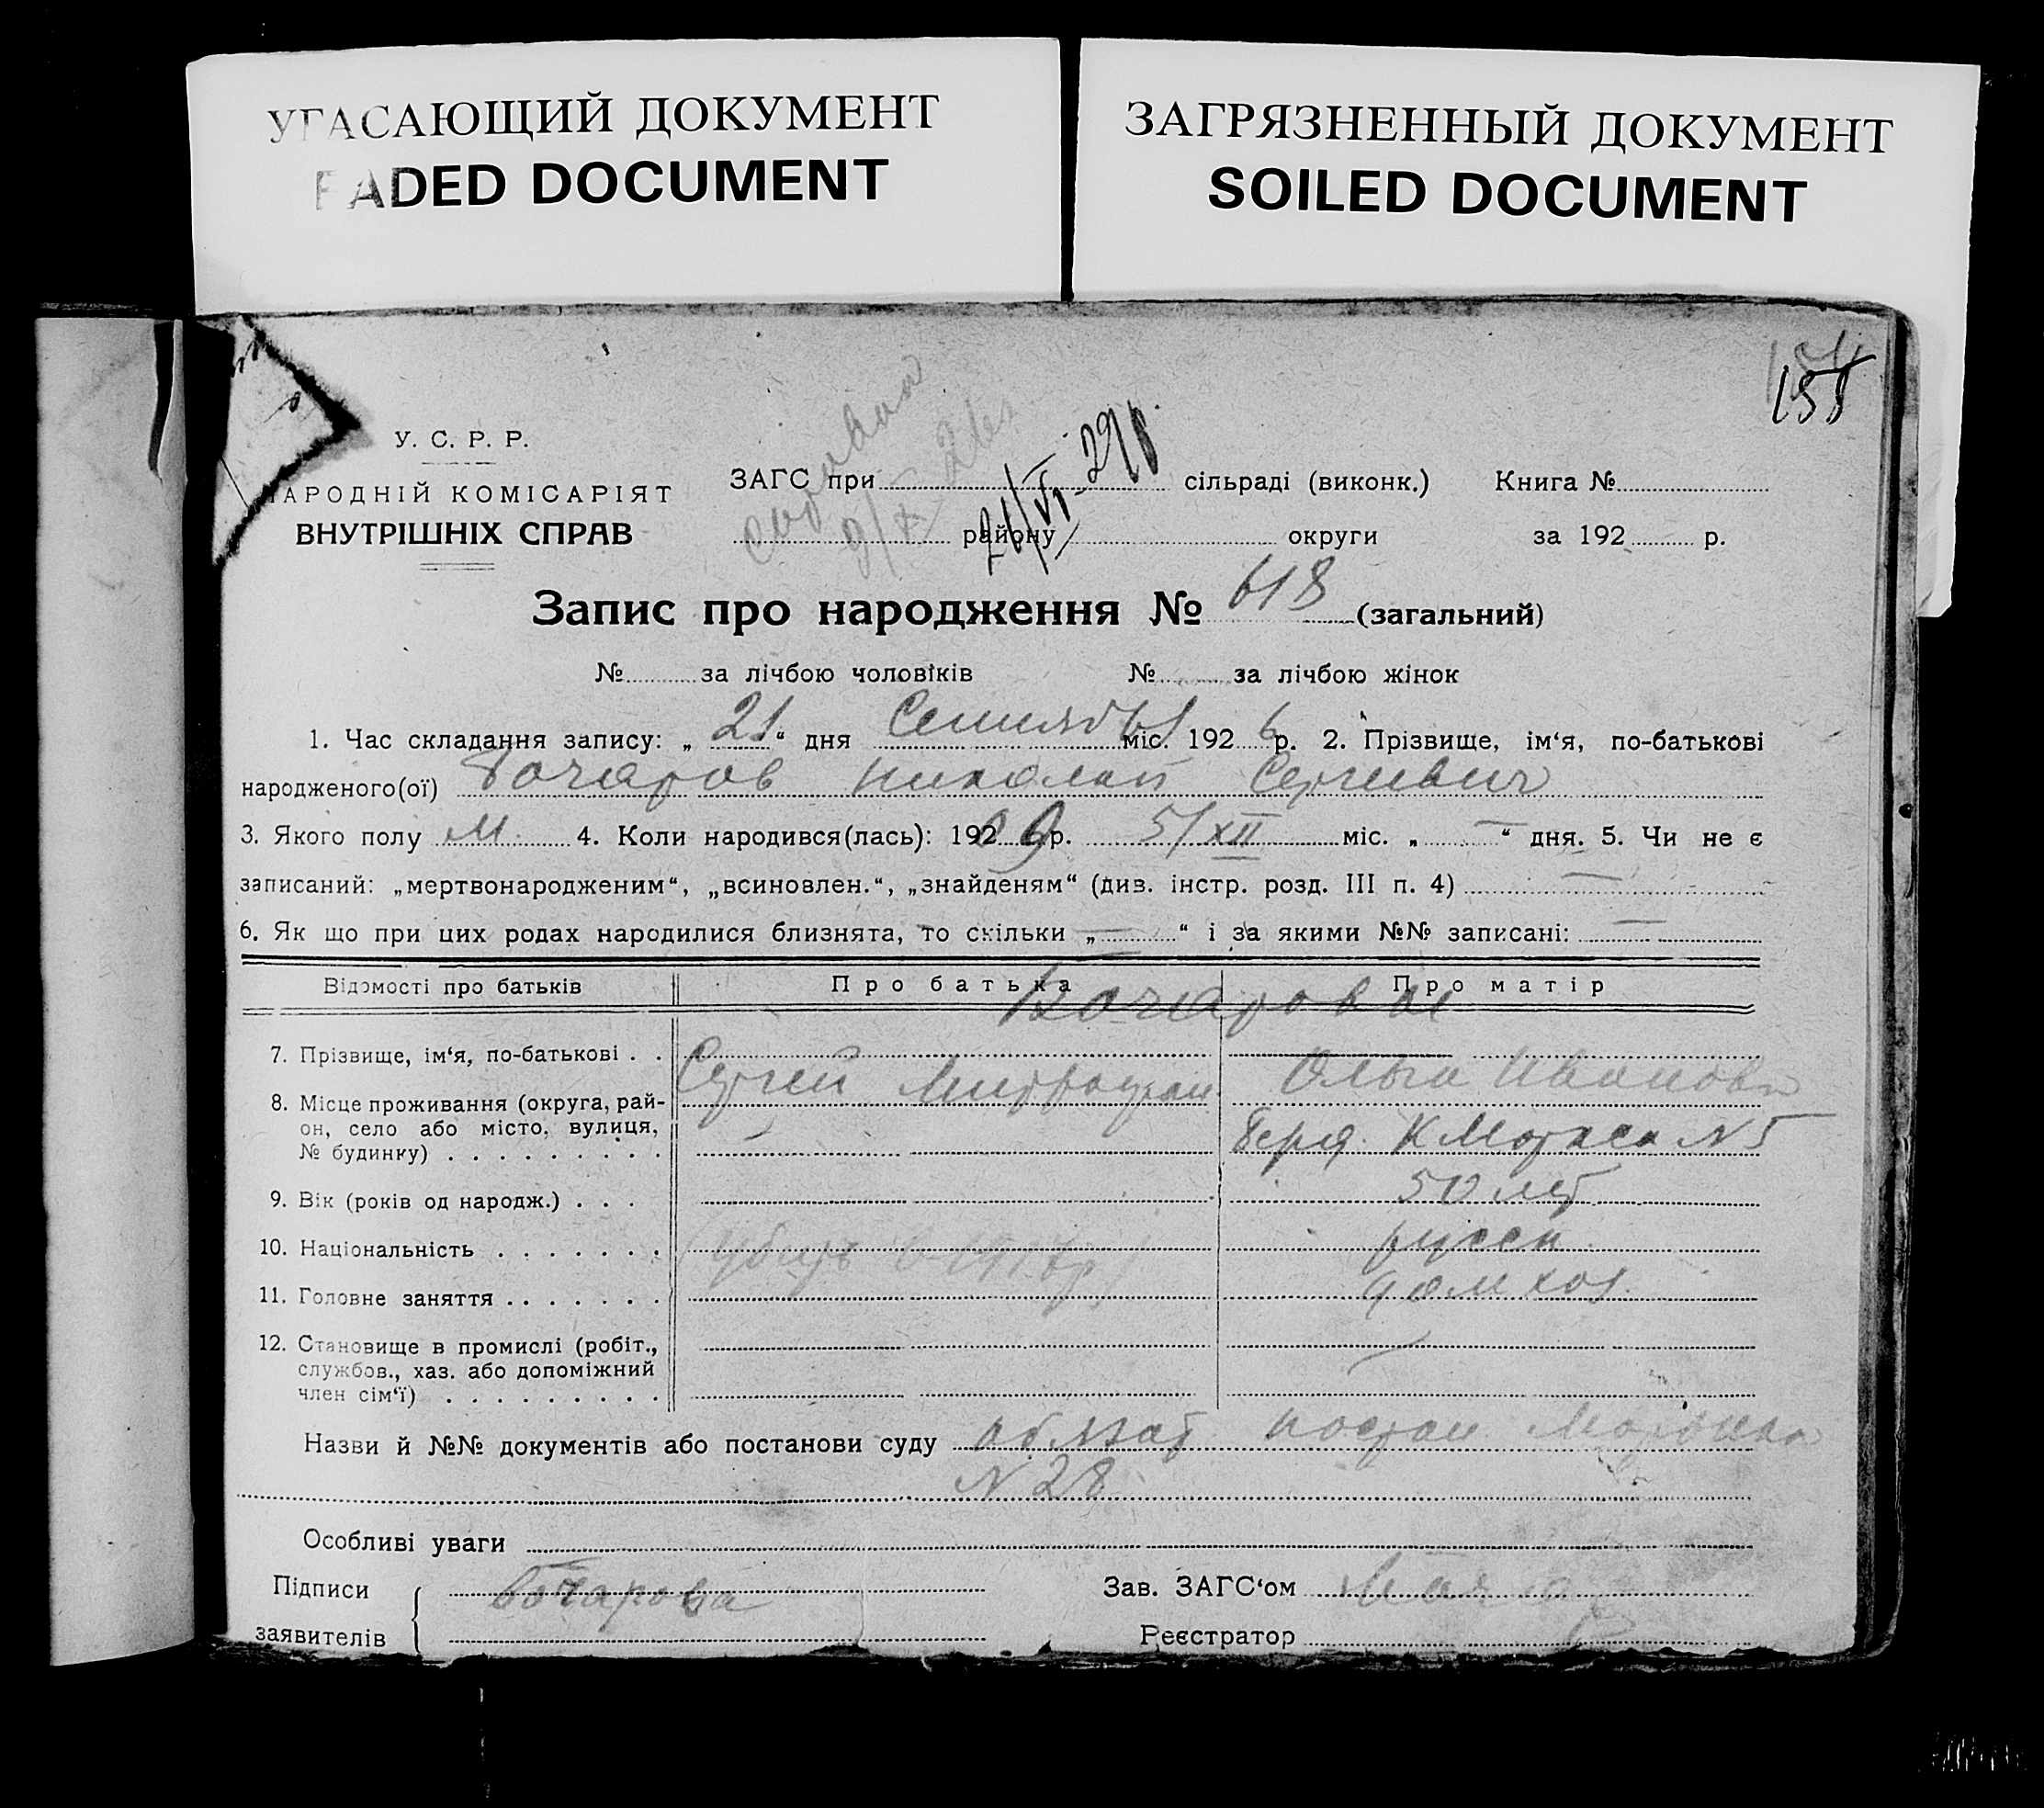 УГАСАЮЩИЙ ДОКУМЕНТ
FADED DOCUMENT
ЗАГРЯЗНЕННЫЙ ДОКУМЕНТ
SOILED DOCUMENT
155
У. С. Р. Р.
НАРОДНІЙ КОМІСАРІЯТ
ВНУТРІШНІХ СПРАВ
ЗАГС при сільраді (виконк.) Книга №
району округи за 192 р.
Запис про народження № 618 (загальний)
№ за лічбою чоловіків № за лічбою жінок
1. Час складання запису: „ 21 “ дня Сентября міс. 192 6 р. 2. Прізвище, ім‘я, по-батькові
народженого(ої) Бочаров Николай Сергеевич
3. Якого полу м. 4. Коли народився(лась): 192 09 р. 5/XII міс. „ — “ дня. 5. Чи не є
записаний: „мертвонародженим“, „всиновлен.“, „знайденям“ (див. інстр. розд. III п. 4) —
6. Як що при цих родах народилися близнята, то скільки „ — “ і за якими №№ записані: —
Відомості про батьків Про батька Про матір
Бочаровы
7. Прізвище, ім‘я, по-батькові . .
Сергей Митрофан Ольга Иванова
8. Місце проживання (округа, рай-
он, село або місто, вулиця,
№ будинку) . . . . . . . . . Берд. К Маркса № 5
9. Вік (років од народж.) . . . 50 лет
10. Національність . . . . . . . русск
11. Головне заняття . . . . . . . домхоз.
12. Становище в промислі (робіт.,
службов., хаз. або допоміжний
член сім‘ї) . . . . . . . . .
Назви й №№ документів або постанови суду
N 28
Особливі уваги
Підписи Бочарова Зав. ЗАГС‘ом
заявителів Реєстратор